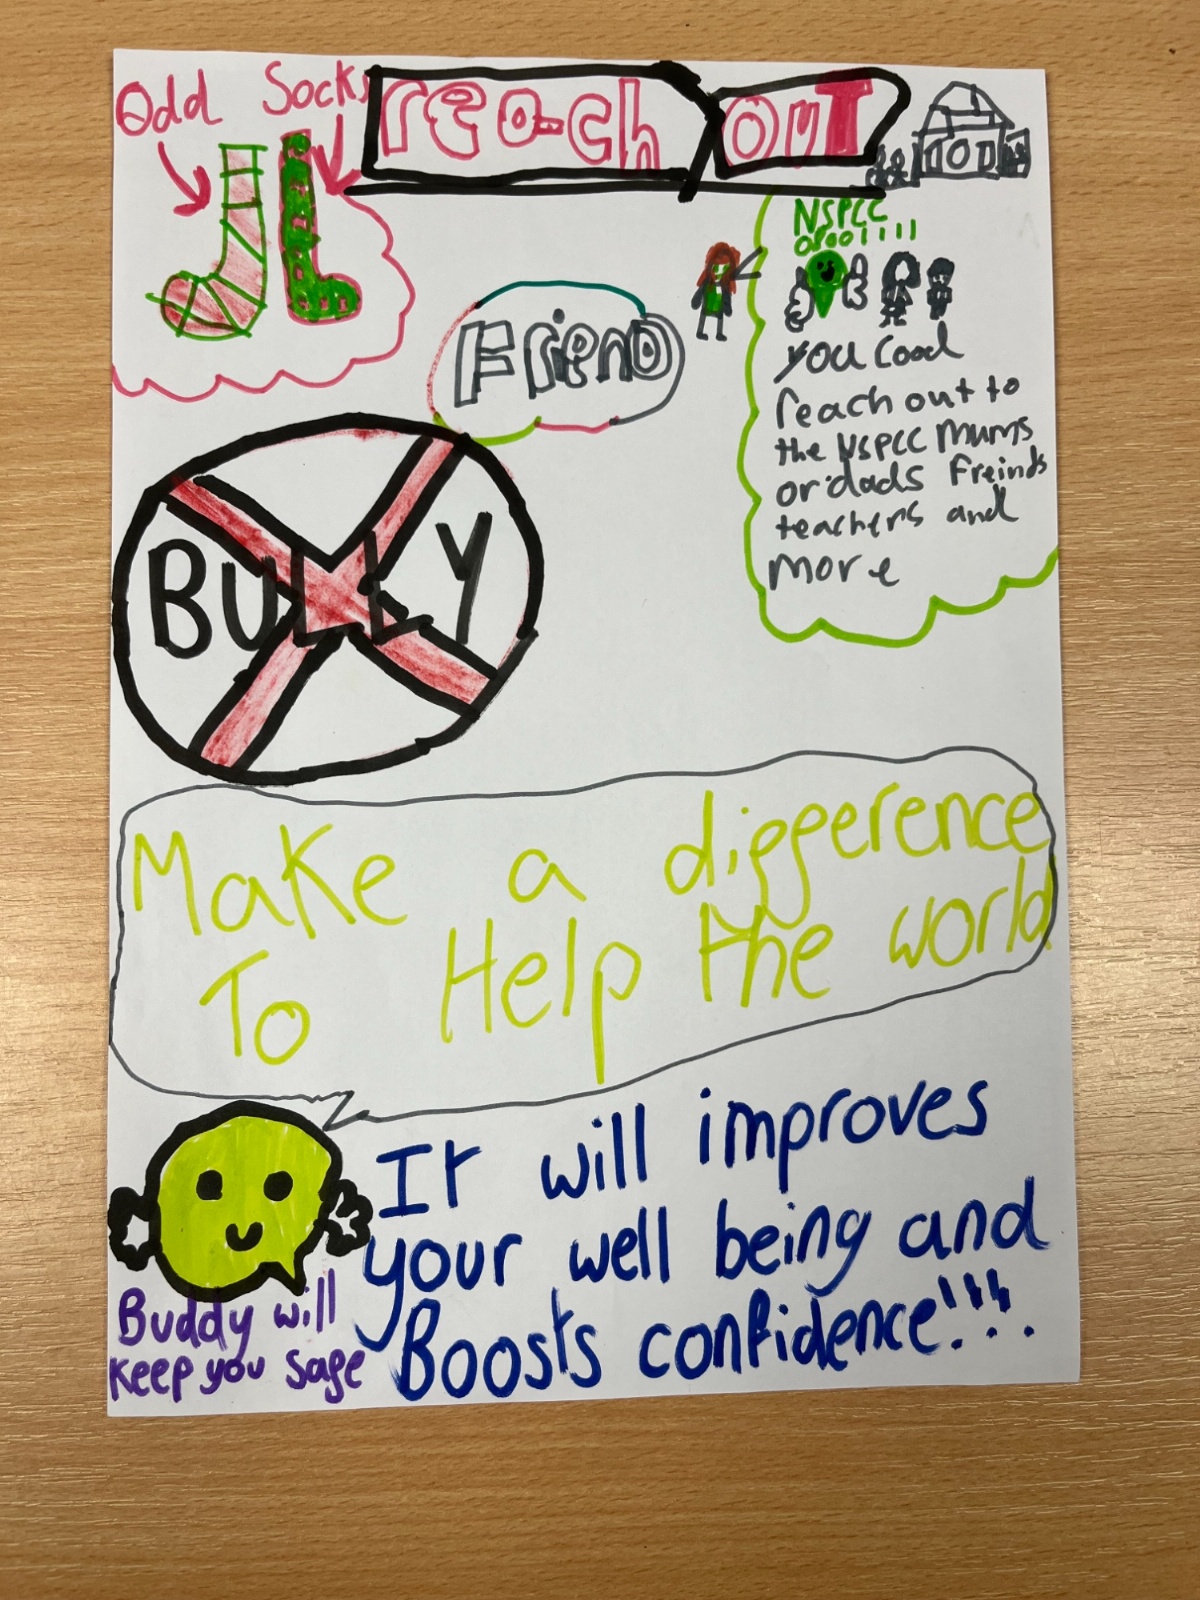 Odd Socks
reach out
NSPCC
08001111
Friend
you cood
reach out to
the NSPCC mums
or dads freinds
teachers and
more
BULLY
Make a difference
To Help the world
It will improves
your well being and
Boosts confidence!!!
Buddy will
keep you safe